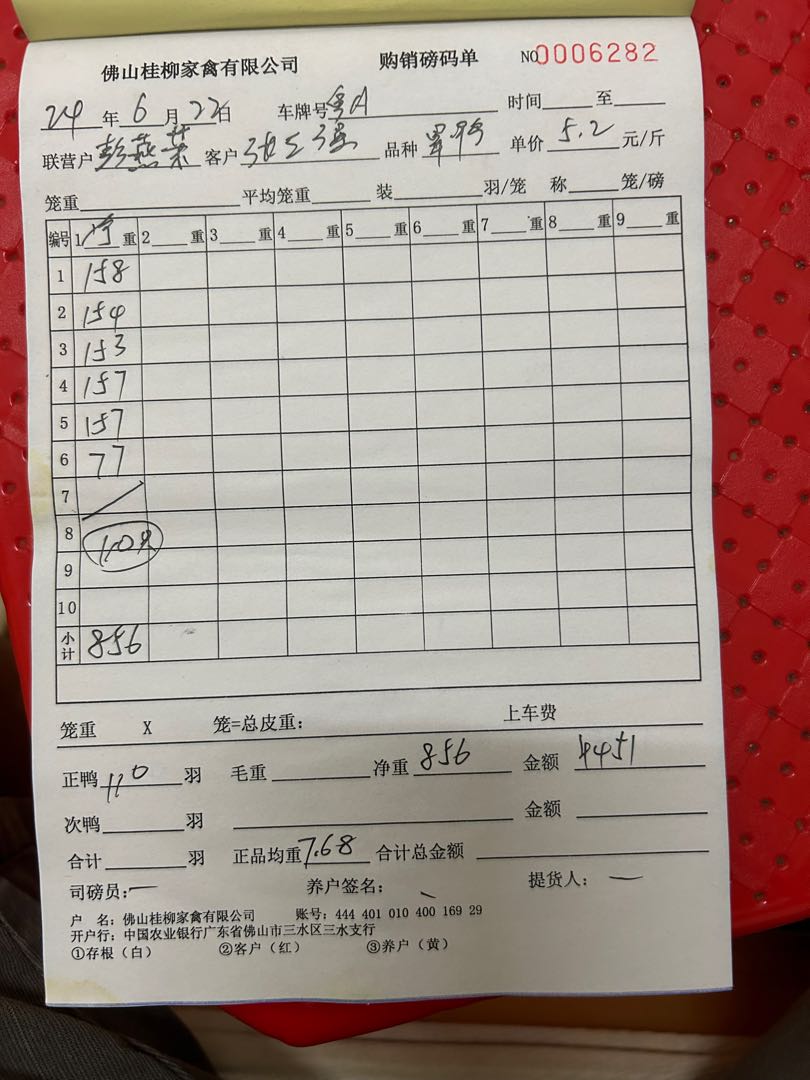 佛山桂柳家禽有限公司 购销磅码单 NO 0006282
24 年 6 月 22 日 车牌号 粤A 时间 至
联营户 彭燕荣 客户 品种 单价 5.2 元/斤
笼重 平均笼重 装 羽/笼 称 笼/磅
编号 1 净 重 2 重 3 重 4 重 5 重 6 重 7 重 8 重 9 重
1 158
2 154
3 153
4 157
5 157
6 77
7
8 110只
9
10
小计 856
笼重 X 笼=总皮重: 上车费
正鸭 110 羽 毛重 净重 856 金额 4451
次鸭 羽 金额
合计 羽 正品均重 7.68 合计总金额
司磅员: 养户签名: 提货人:
户 名: 佛山桂柳家禽有限公司 账号: 444 401 010 400 169 29
开户行: 中国农业银行广东省佛山市三水区三水支行
①存根(白) ②客户(红) ③养户(黄)